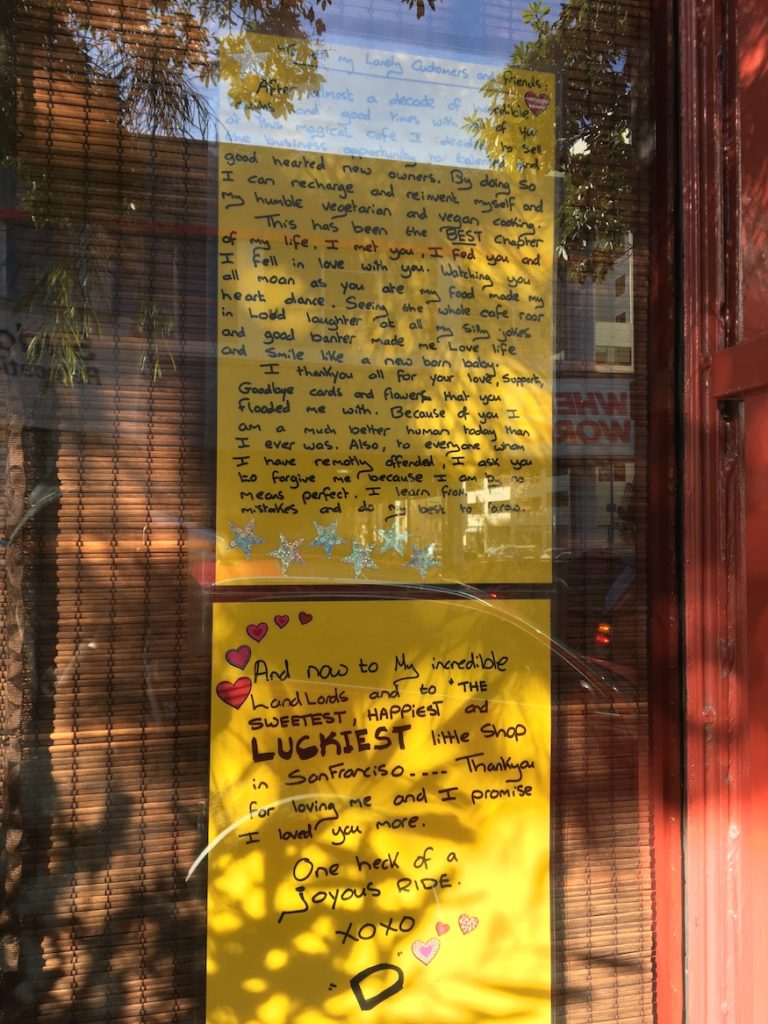 my Lovely Customers and Friends.
After almost a decade of incredible
and good times with of you
at this magical cafe I to sell
the business opportunity to talented and
good hearted new owners. By doing so
I can recharge and reinvent myself and
my humble vegetarian and vegan cooking.
This has been the BEST chapter
of my life. I met you, I fed you and
I fell in love with you. Watching you
all moan as you ate my food made my
heart dance. Seeing the whole cafe roar
in Loud laughter at all my silly jokes
and good banter made me Love life
and smile like a new born baby.
I thankyou all for your love, support,
Goodbye cards and flowers that you
flooded me with. Because of you I
am a much better human today than
I ever was. Also, to everyone whom
I have remotly offended, I ask you
to forgive me because I am by no
means perfect. I learn from
mistakes and do my best to grow.
And now to My incredible
LandLords and to "THE
SWEETEST, HAPPIEST and
LUCKIEST little Shop
in SanFranciso.... Thankyou
for loving me and I promise
I loved you more.
One heck of a
joyous RIDE.
XOXO
"D"